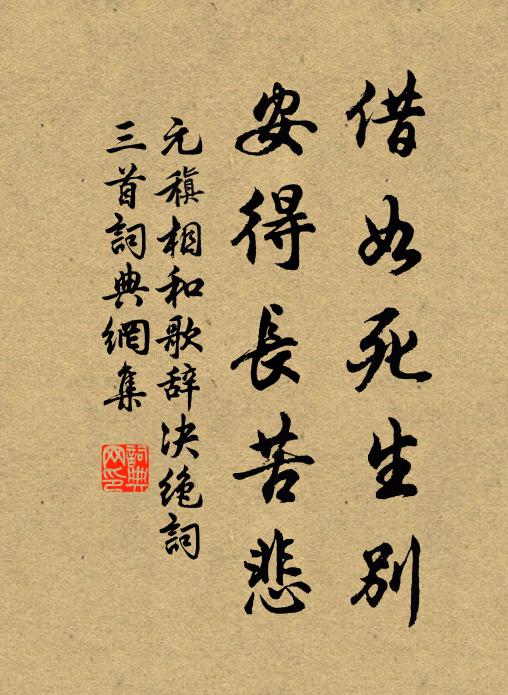 借如死生別
安得長苦悲
元稹相和歌辞决绝詞
三首詞典網集
詞典网印